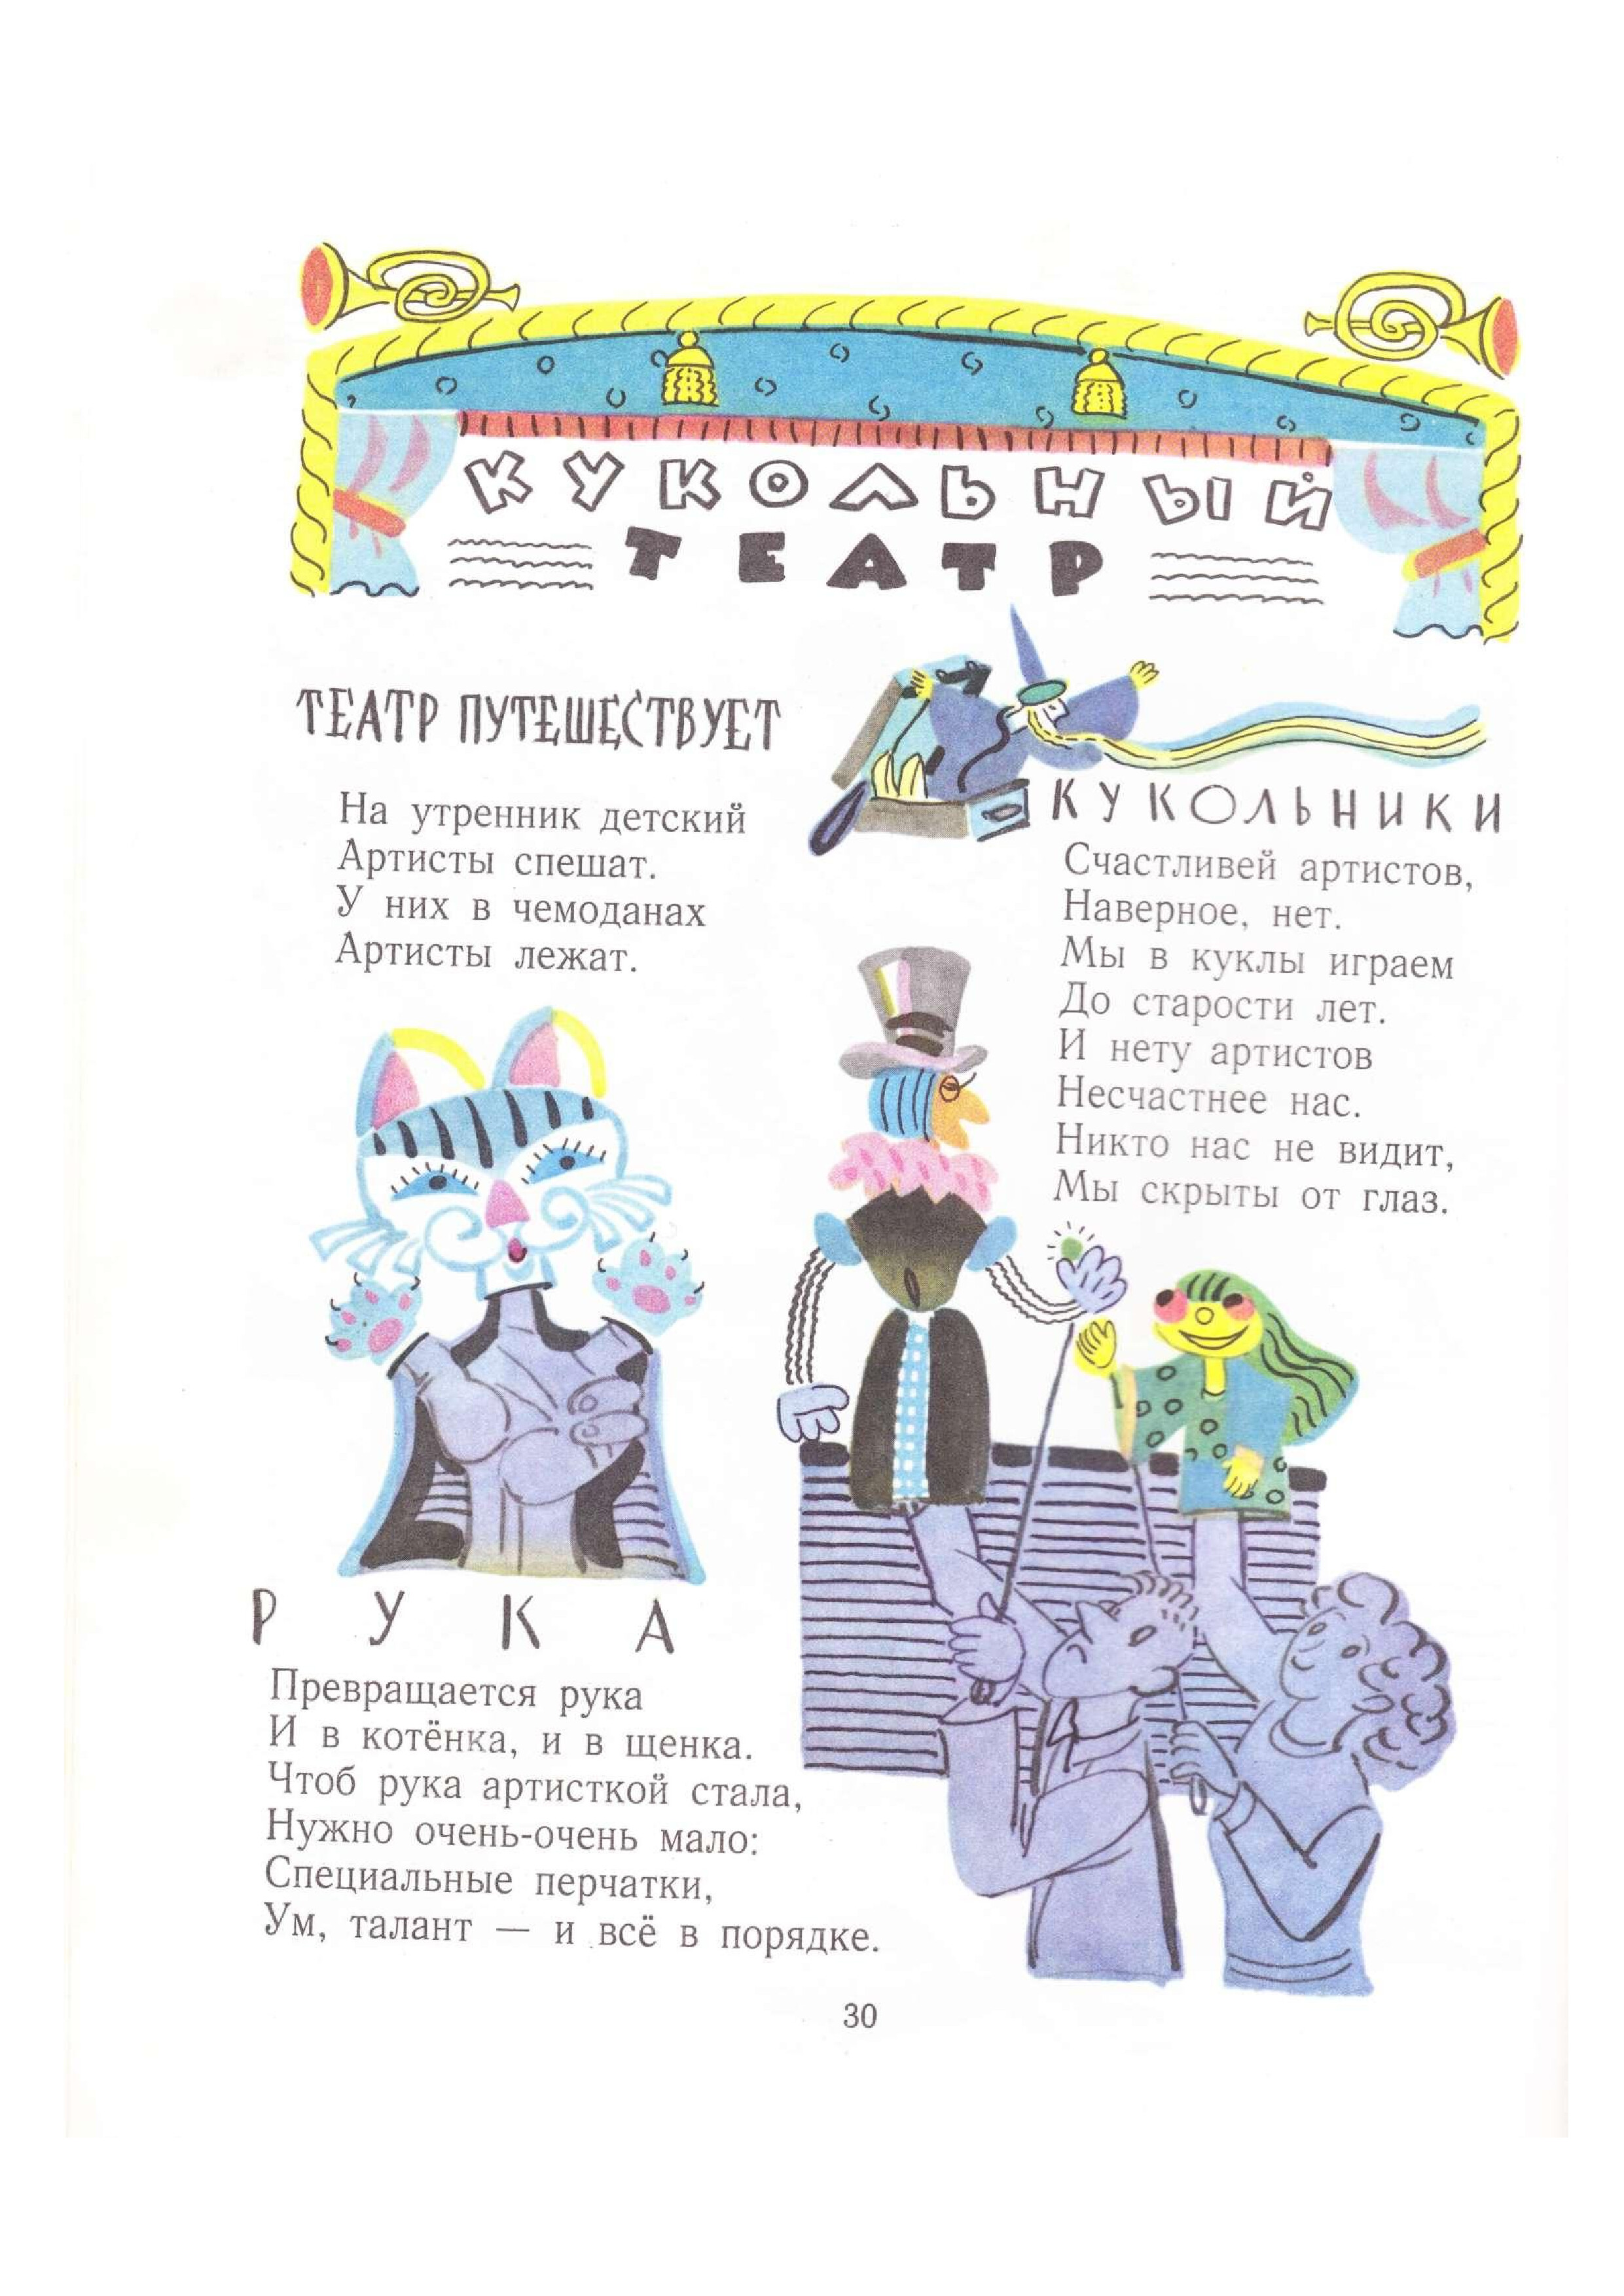 КУКОЛЬНЫЙ
ТЕАТР
ТЕАТР ПУТЕШЕСТВУЕТ
На утренник детский
Артисты спешат.
У них в чемоданах
Артисты лежат.
КУКОЛЬНИКИ
Счастливей артистов,
Наверное, нет.
Мы в куклы играем
До старости лет.
И нету артистов
Несчастнее нас.
Никто нас не видит,
Мы скрыты от глаз.
РУКА
Превращается рука
И в котёнка, и в щенка.
Чтоб рука артисткой стала,
Нужно очень-очень мало:
Специальные перчатки,
Ум, талант — и всё в порядке.
30